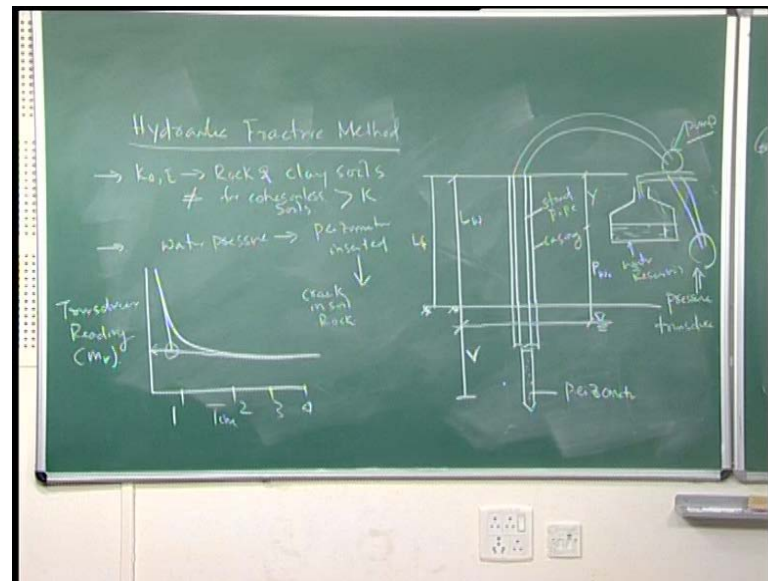 Hydraulic Fracture Method
→ K₀, E → Rock & clay soils
≠ for cohesionless > K
soils
→ water pressure → peizometer
inserted
↓
crack
in soil
Rock
Transducer
Reading
(mv)
1 Time 2 3 4
pump
stand
pipe
casing
Lw
Y
Pw
V
water
Reservoir
pressure
peizometer